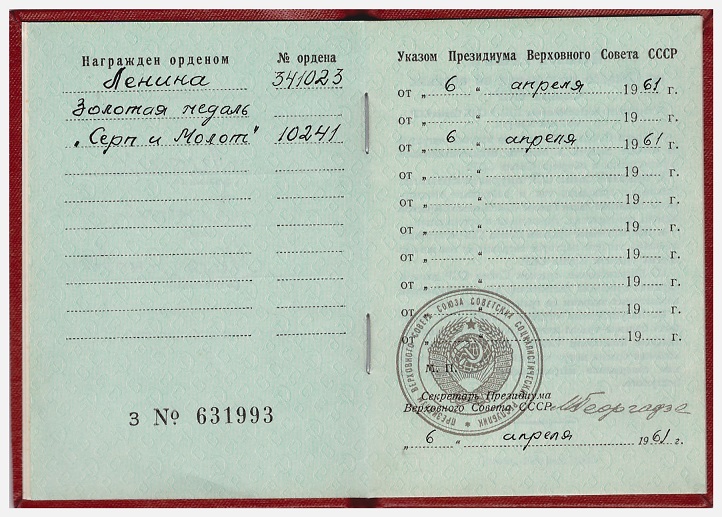 Награжден орденом № ордена
Ленина 341023
Золотая медаль
„Серп и Молот" 10241
З № 631993
Указом Президиума Верховного Совета СССР
от „ 6 " апреля 1961 г.
от „ " 19 г.
от „ 6 " апреля 1961 г.
от „ " 19 г.
от „ " 19 г.
от „ " 19 г.
от „ " 19 г.
от „ " 19 г.
от „ " 19 г.
от „ " 19 г.
М. П.
ПРЕЗИДИУМ ВЕРХОВНОГО СОВЕТА СОЮЗА СОВЕТСКИХ СОЦИАЛИСТИЧЕСКИХ РЕСПУБЛИК
Секретарь Президиума
Верховного Совета СССР МГеоргадзе
„ 6 " апреля 1961 г.